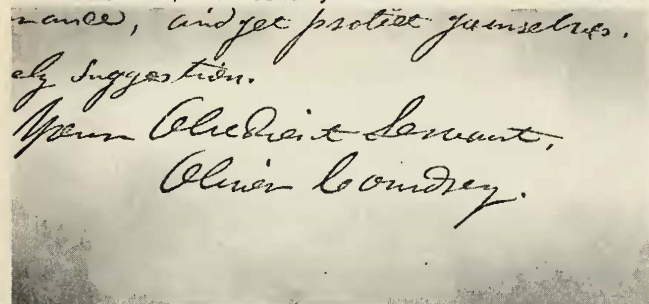 and yet protect yourselves.
suggestion.
Your Obedient Servant,
Oliver Cowdrey.